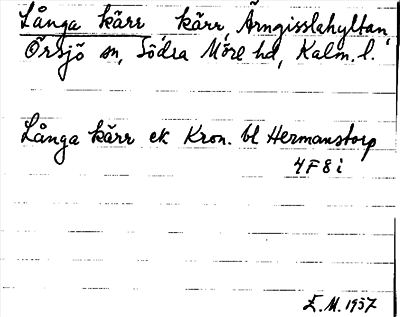 Långa kärr kärr, Ärngisslahyltan
Örsjö sn, Södra Möre hd, Kalm. l.
Långa kärr ek Kron. bl Hermanstorp
4F8i
E.M. 1957